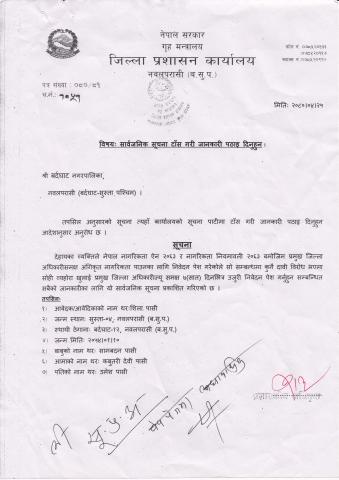 नेपाल सरकार
गृह मन्त्रालय
जिल्ला प्रशासन कार्यालय
नवलपरासी (ब.सु.प.)
पत्र संख्या : ०८०/८१
च.नं.:
मिति: २०८०।०४।२५
विषयः सार्वजनिक सूचना टाँस गरी जानकारी पठाइ दिनुहुन ।
श्री बर्दघाट नगरपालिका,
नवलपरासी (बर्दघाट-सुस्ता पश्चिम) ।
तपसिल अनुसारको सूचना त्यहाँ कार्यालयको सूचना पाटीमा टाँस गरी जानकारी पठाइ दिनुहुन
आदेशानुसार अनुरोध छ ।
सूचना
देहायका व्यक्तिले नेपाल नागरिकता ऐन २०६३ र नागरिकता नियमावली २०६३ बमोजिम प्रमुख जिल्ला
अधिकारीसमक्ष अंगिकृत नागरिकता पाउनका लागि निवेदन पेश गरेकोले सो सम्बन्धमा कुनै दावी विरोध भएमा
सोही व्यहोरा खुलाई प्रमुख जिल्ला अधिकारीज्यू समक्ष ७(सात) दिनभित्र उजुरी निवेदन पेश गर्नुहुन सम्बन्धित
सबैको जानकारीका लागि यो सार्वजनिक सूचना प्रकाशित गरिएको छ ।
तपसिलः
१) आवेदक/आवेदिकाको नाम थर:शिला पासी
२) जन्म स्थान: सुस्ता-०४, नवलपरासी (ब.सु.प.)
३) स्थायी ठेगाना: बर्दघाट-१२, नवलपरासी (ब.सु.प.)
४) जन्म मिति:
५) बाबुको नाम थर: सामबदन पासी
६) आमाको नाम थर: कबुतरी देवी पासी
७) पतिको नाम थर: उमेश पासी